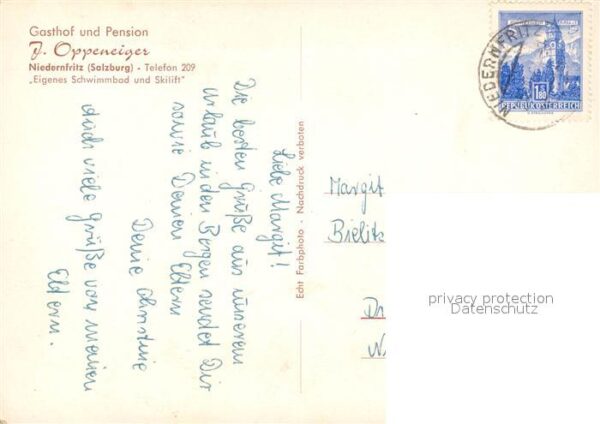 Gasthof und Pension
J. Oppeneiger
Niedernfritz (Salzburg) - Telefon 209
„Eigenes Schwimmbad und Skilift"
Liebe Margit!
Die besten Grüße aus unserem
Urlaub in den Bergen sendet Dir
sowie Deinen Eltern
Deine Christine
Auch viele Grüße von meinen
Eltern.
Echt Farbphoto - Nachdruck verboten
NIEDERNFRITZ
1.80
REPUBLIK ÖSTERREICH
Margit
Bielitz
privacy protection
Datenschutz